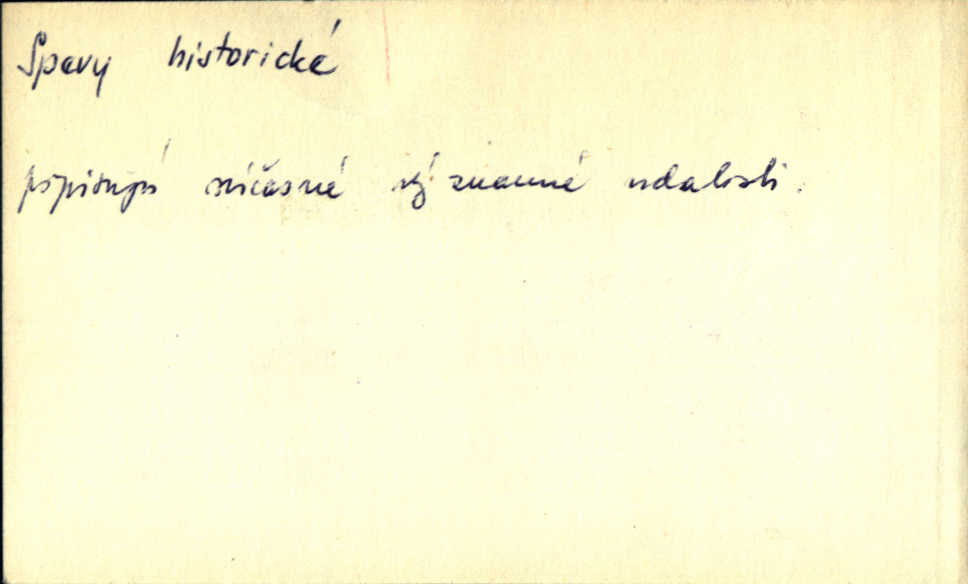 Spevy historické
popisujú súčasné významné udalosti.